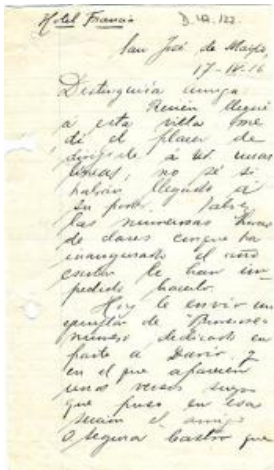 Hotel Francia D.42.122.
San José de Mayo,
17-IV-16
Distinguida amiga:
Recién llegué
a esta villa me
dí el placer de
dirigirle á Ud unas
líneas, no sé si
habrán llegado á
su poder. las numerosas horas
de clases conque ha
inaugurado el año
escolar le han im-
pedido hacerlo.
Hoy le envío un
ejemplar de
número dedicado en
parte a Darío, y
en el que aparecen
unos versos suyos
que puso en esa
sección el amigo
Segura Castro que